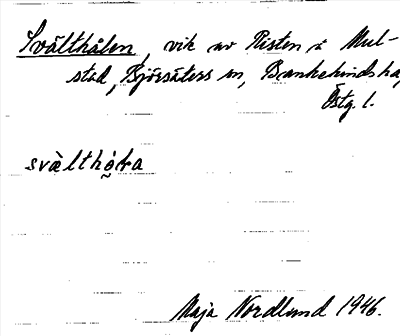 Svälthålen, vik av Risten i Mul-
stad, Björsäters sn, Bankekinds hd,
Östg. l.
svàlthò̰ɫa
Maja Nordlund 1946.